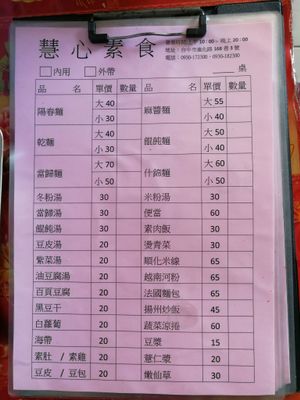 慧心素食
營業時間:上午 10:00~晚上 20:00
電話:0930-172300、0930-182300
內用 外帶 桌
品 名 單價 數量 品 名 單價 數量
陽春麵 大 40 小 30 麻醬麵 大 55 小 40
乾麵 大 40 小 30 餛飩麵 大 50 小 40
當歸麵 大 70 小 50 什錦麵 大 60 小 50
冬粉湯 30 米粉湯 30
當歸湯 30 便當 60
餛飩湯 30 素肉飯 30
豆皮湯 20 燙青菜 30
紫菜湯 20 順化米線 65
油豆腐湯 20 越南河粉 65
百頁豆腐 20 法國麵包 65
黑豆干 20 揚州炒飯 45
白蘿蔔 20 蔬菜涼捲 60
海帶 20 豆漿 15
素肚 / 素雞 20 薏仁漿 20
豆皮 / 豆包 20 嫩仙草 30